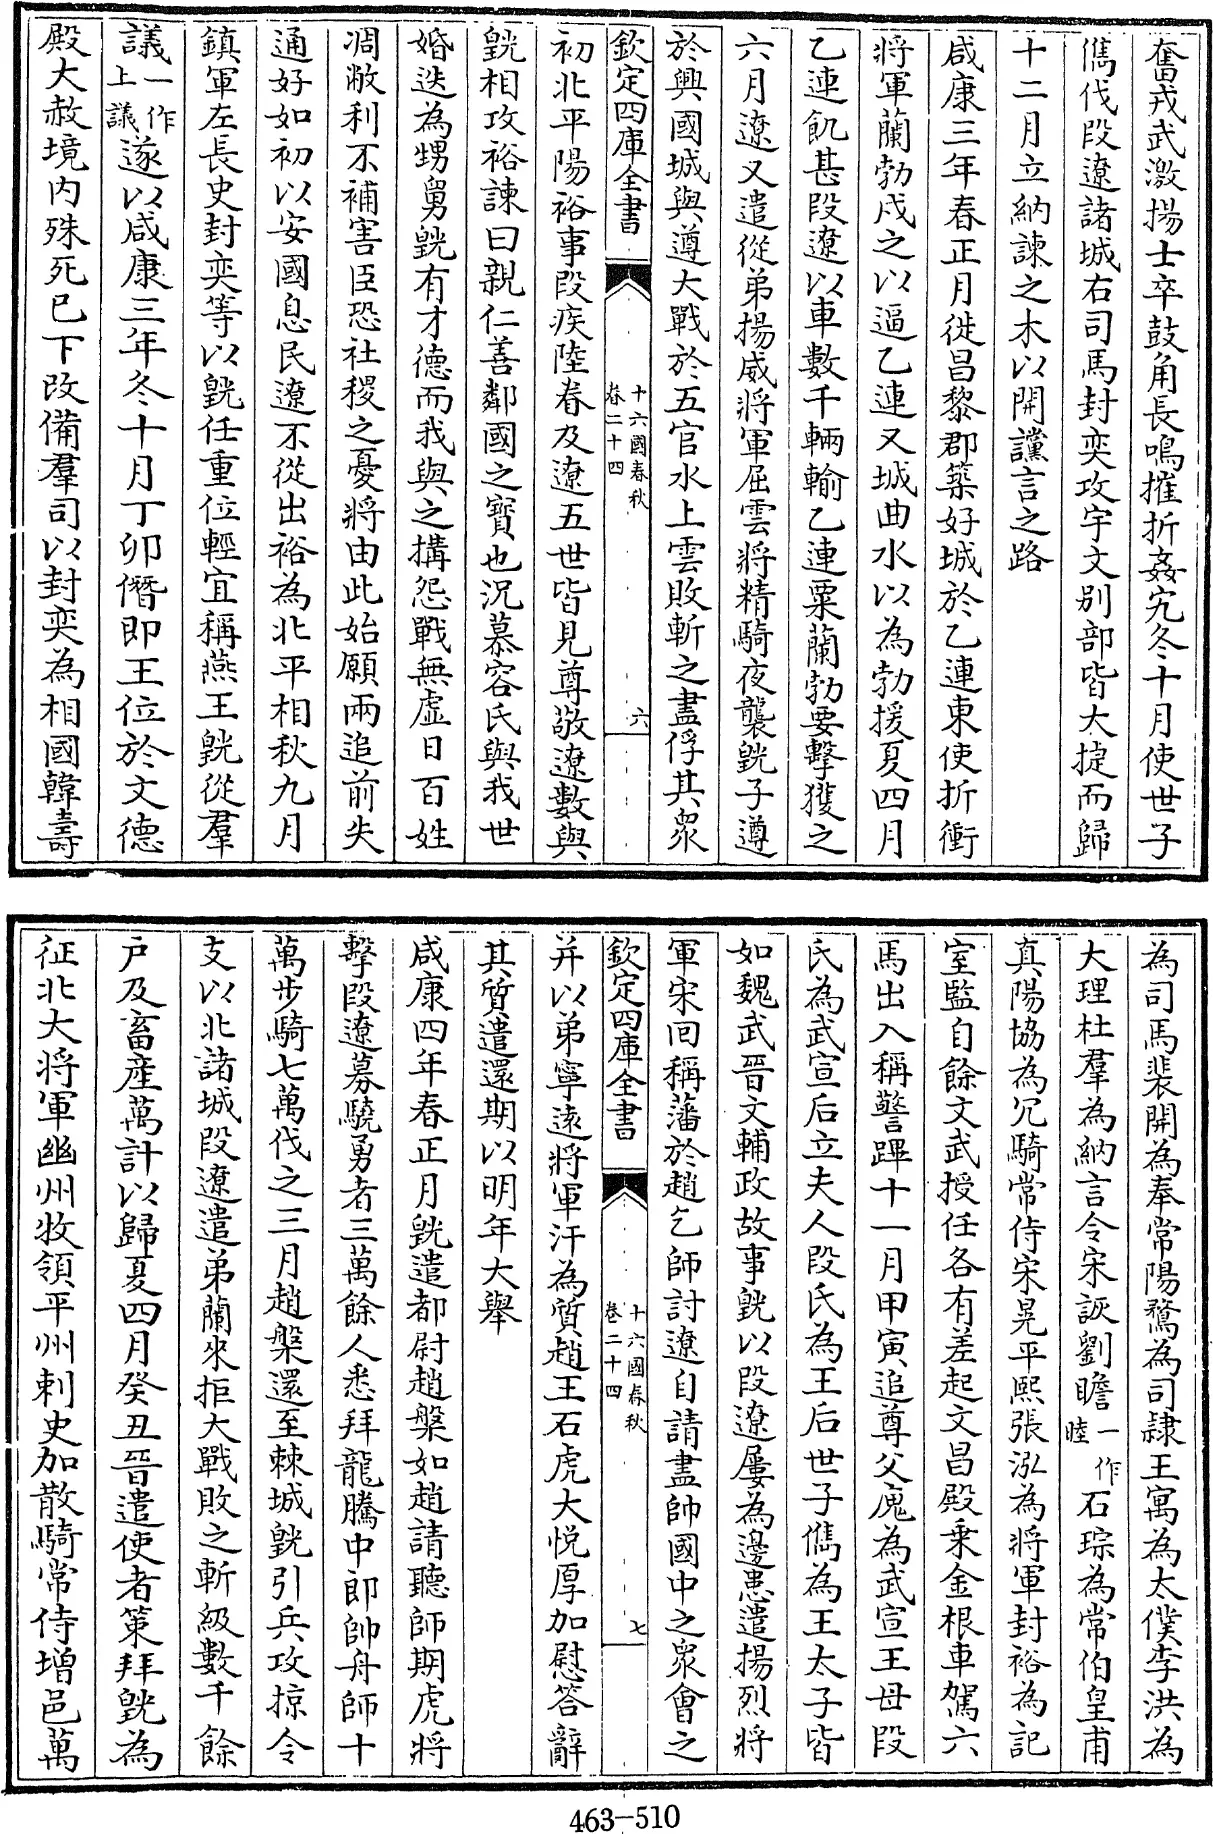 奮戎武激揚士卒鼓角長鳴摧折姦宄冬十月使世子
儁伐段遼諸城右司馬封奕攻宇文別部皆大捷而歸
十二月立納諫之木以開讜言之路
咸康三年春正月徙昌黎郡築好城於乙連東使折衝
將軍蘭勃戍之以逼乙連又城曲水以為勃援夏四月
乙連飢甚段遼以車數千輛輸乙連粟蘭勃要擊獲之
六月遼又遣從弟揚威將軍屈雲將精騎夜襲皝子遵
於興國城與遵大戰於五官水上雲敗斬之盡俘其衆
欽定四庫全書 十六國春秋 卷二十四 六
初北平陽裕事段疾陸眷及遼五世皆見尊敬遼數與
皝相攻裕諫曰親仁善鄰國之寶也況慕容氏與我世
婚迭為甥舅皝有才德而我與之搆怨戰無虛日百姓
凋敝利不補害臣恐社稷之憂將由此始願兩追前失
通好如初以安國息民遼不從出裕為北平相秋九月
鎮軍左長史封奕等以皝任重位輕宜稱燕王皝從羣
議一作上議遂以咸康三年冬十月丁卯僭即王位於文德
殿大赦境內殊死已下改備羣司以封奕為相國韓壽
為司馬裴開為奉常陽騖為司隸王寓為太僕李洪為
大理杜羣為納言令宋詼劉瞻一作睦石琮為常伯皇甫
真陽協為冗騎常侍宋晃平熙張泓為將軍封裕為記
室監自餘文武授任各有差起文昌殿乗金根車駕六
馬出入稱警蹕十一月甲寅追尊父廆為武宣王母段
氏為武宣后立夫人段氏為王后世子儁為王太子皆
如魏武晉文輔政故事皝以段遼屢為邊患遣揚烈將
軍宋回稱藩於趙乞師討遼自請盡帥國中之衆會之
欽定四庫全書 十六國春秋 卷二十四 七
并以弟寧遠將軍汗為質趙王石虎大悅厚加慰答辭
其質遣還期以明年大舉
咸康四年春正月皝遣都尉趙槃如趙請聽師期虎將
擊段遼募驍勇者三萬餘人悉拜龍騰中郎帥舟師十
萬步騎七萬伐之三月趙槃還至棘城皝引兵攻掠令
支以北諸城段遼遣弟蘭來拒大戰敗之斬級數千餘
戶及畜產萬計以歸夏四月癸丑晉遣使者策拜皝為
征北大將軍幽州牧領平州刺史加散騎常侍增邑萬
463-510